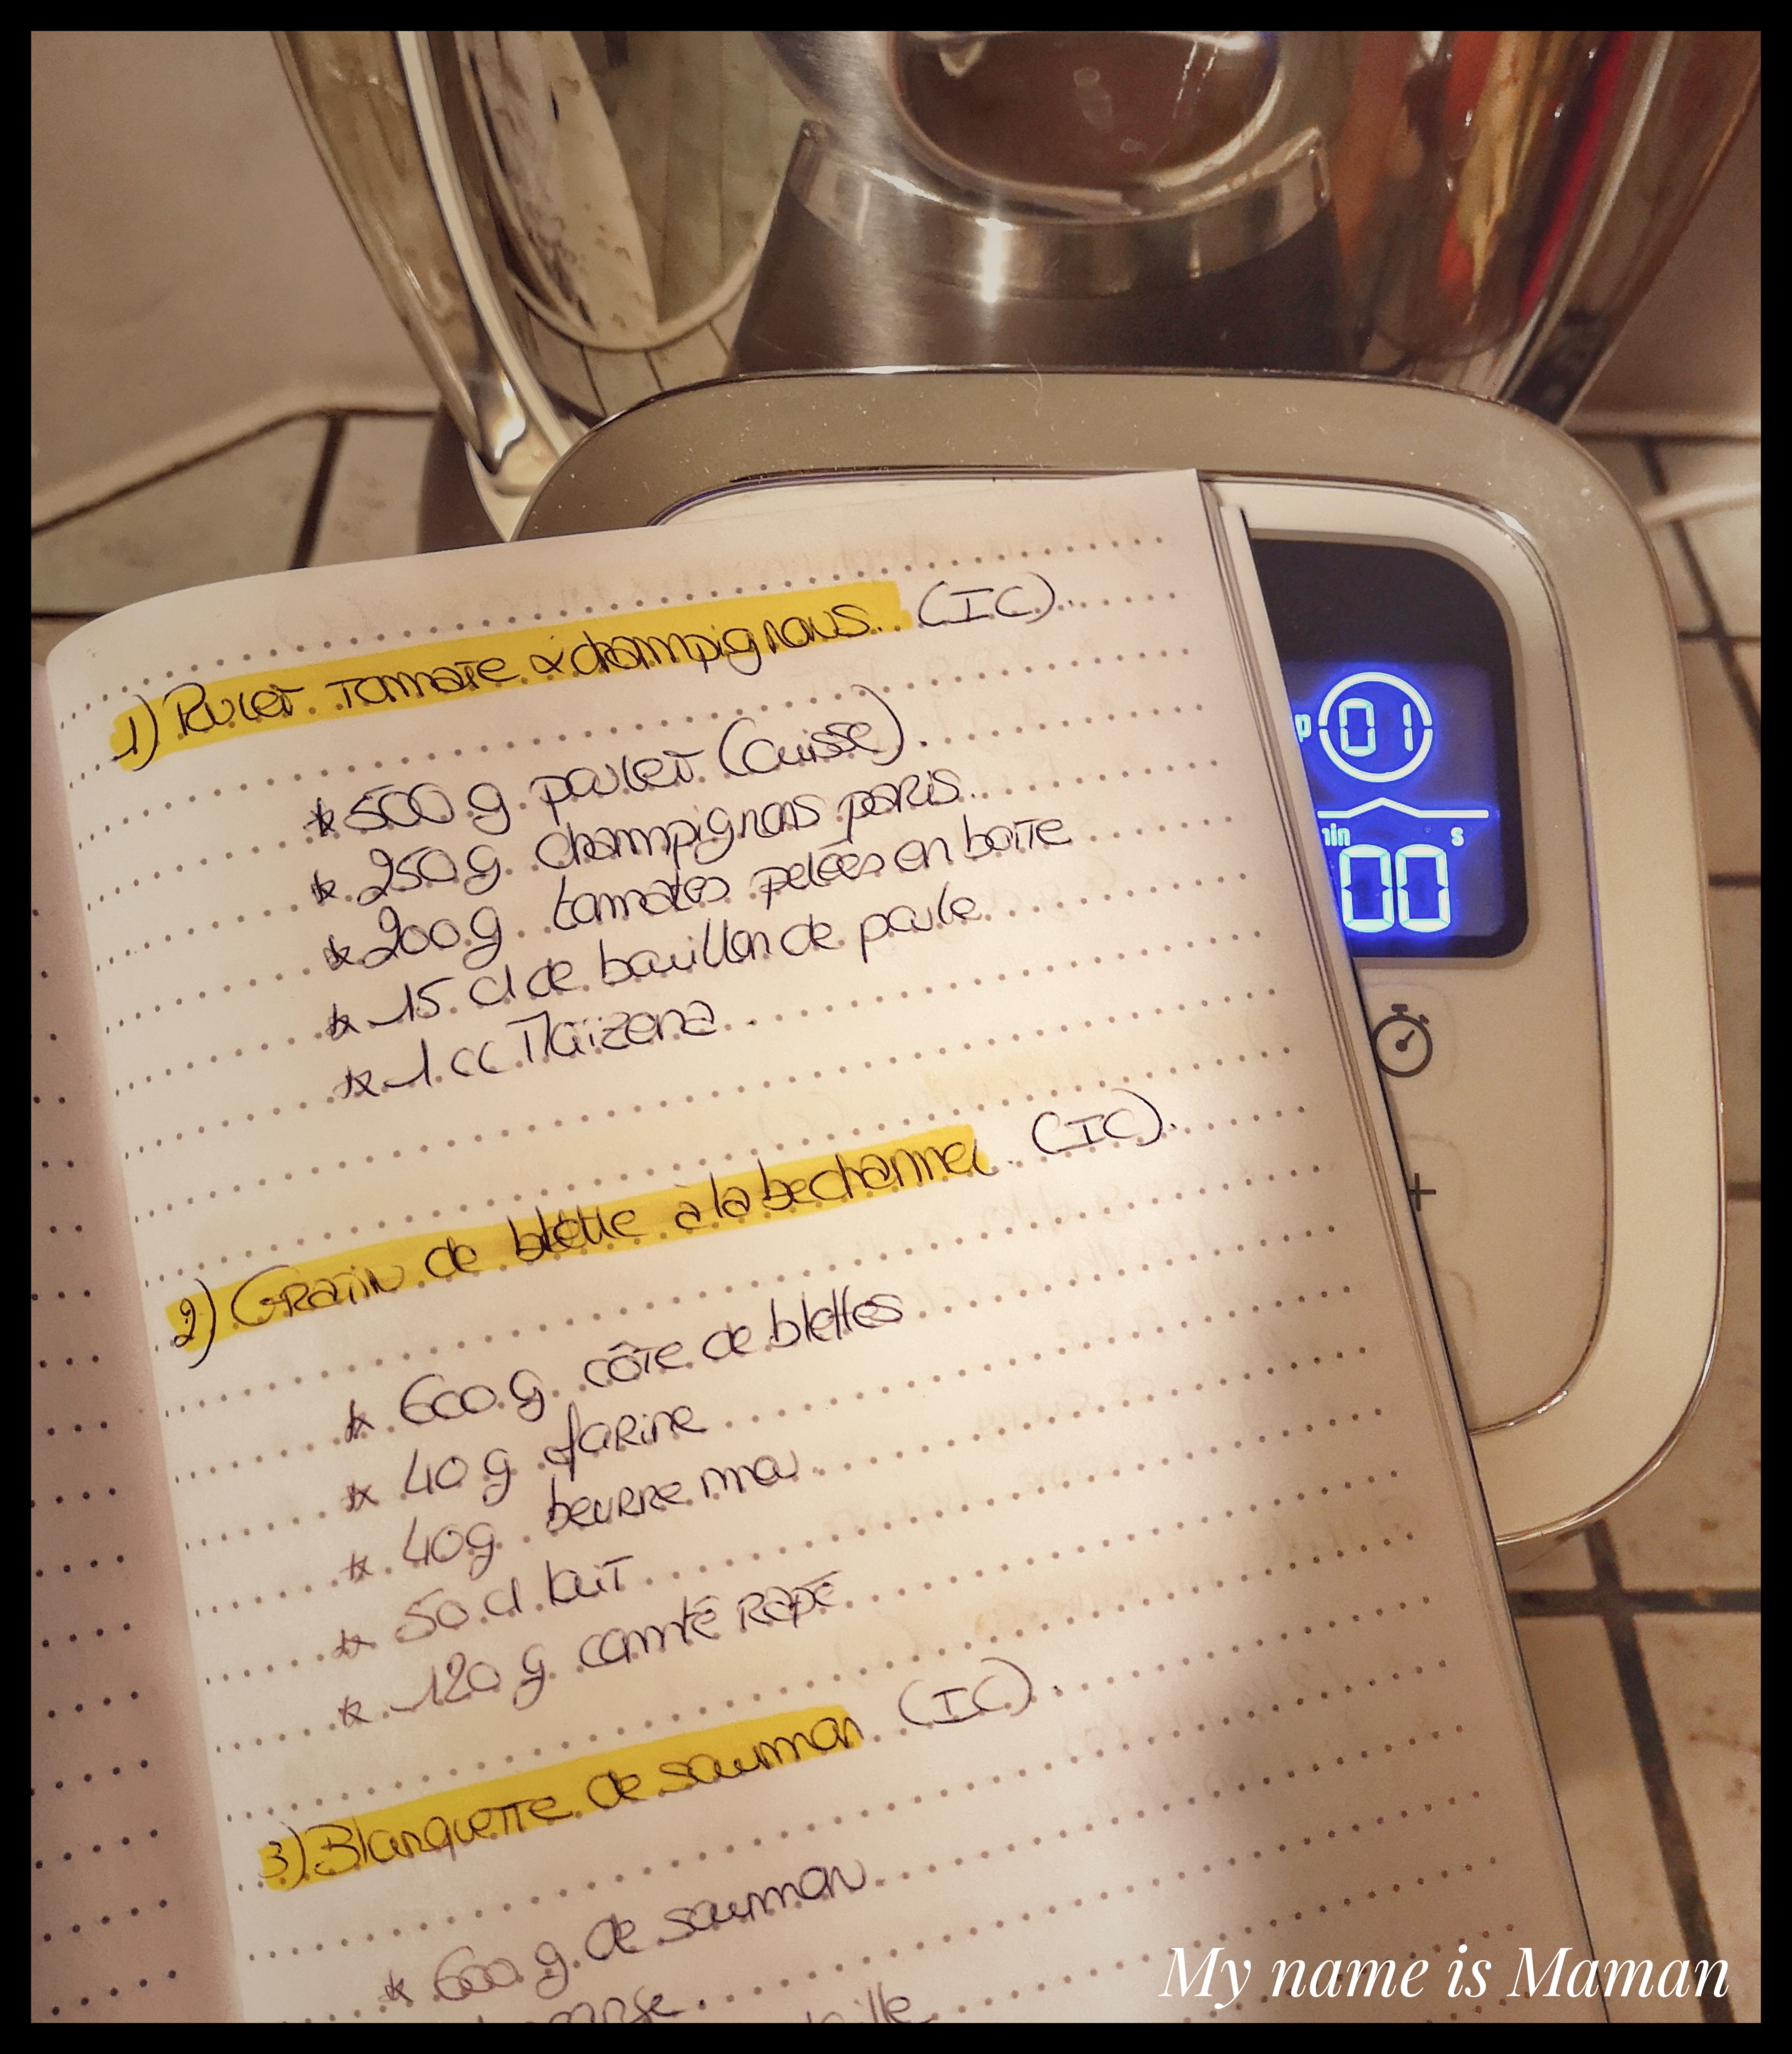 1) Poulet tomate & champignons (IC).
* 500 g poulet (cuisse).
* 250 g champignons paris
* 200 g tomates pelées en boite
* 15 cl de bouillon de poule
* 1 cc Maïzena
2) Gratin de blette à la bechamel (IC).
* 600 g côte de blettes
* 40 g farine
* 40 g beurre mou
* 50 cl lait
* 120 g comté rapé
3) Blanquette de saumon (IC).
* 600 g de saumon
p 01
min s
00
+
My name is Maman